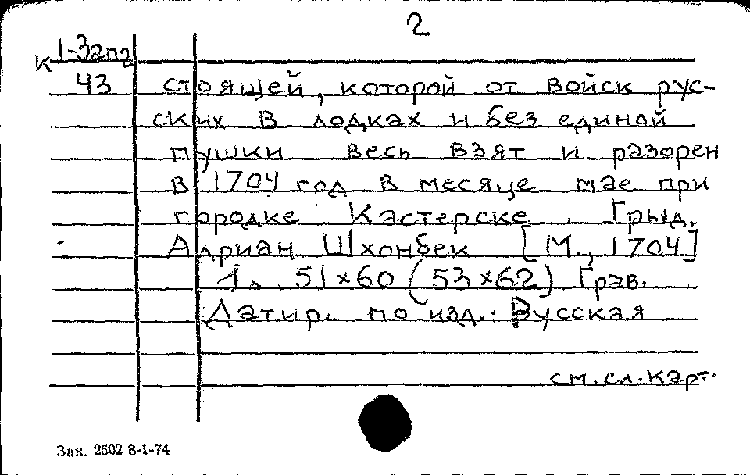 2
К 1-Запд
43 стоящей, которой от войск рус-
ских в лодках и без единой
пушки весь взят и разорен
в 1704 год в месяце мае при
городке Кастерске. Грыд.
Адриан Шхонбек [М., 1704]
1 л. 51×60 (53×62) Грав.
Датир. по изд.: Русская
см. сл. карт.
Зак. 2502 8-1-74